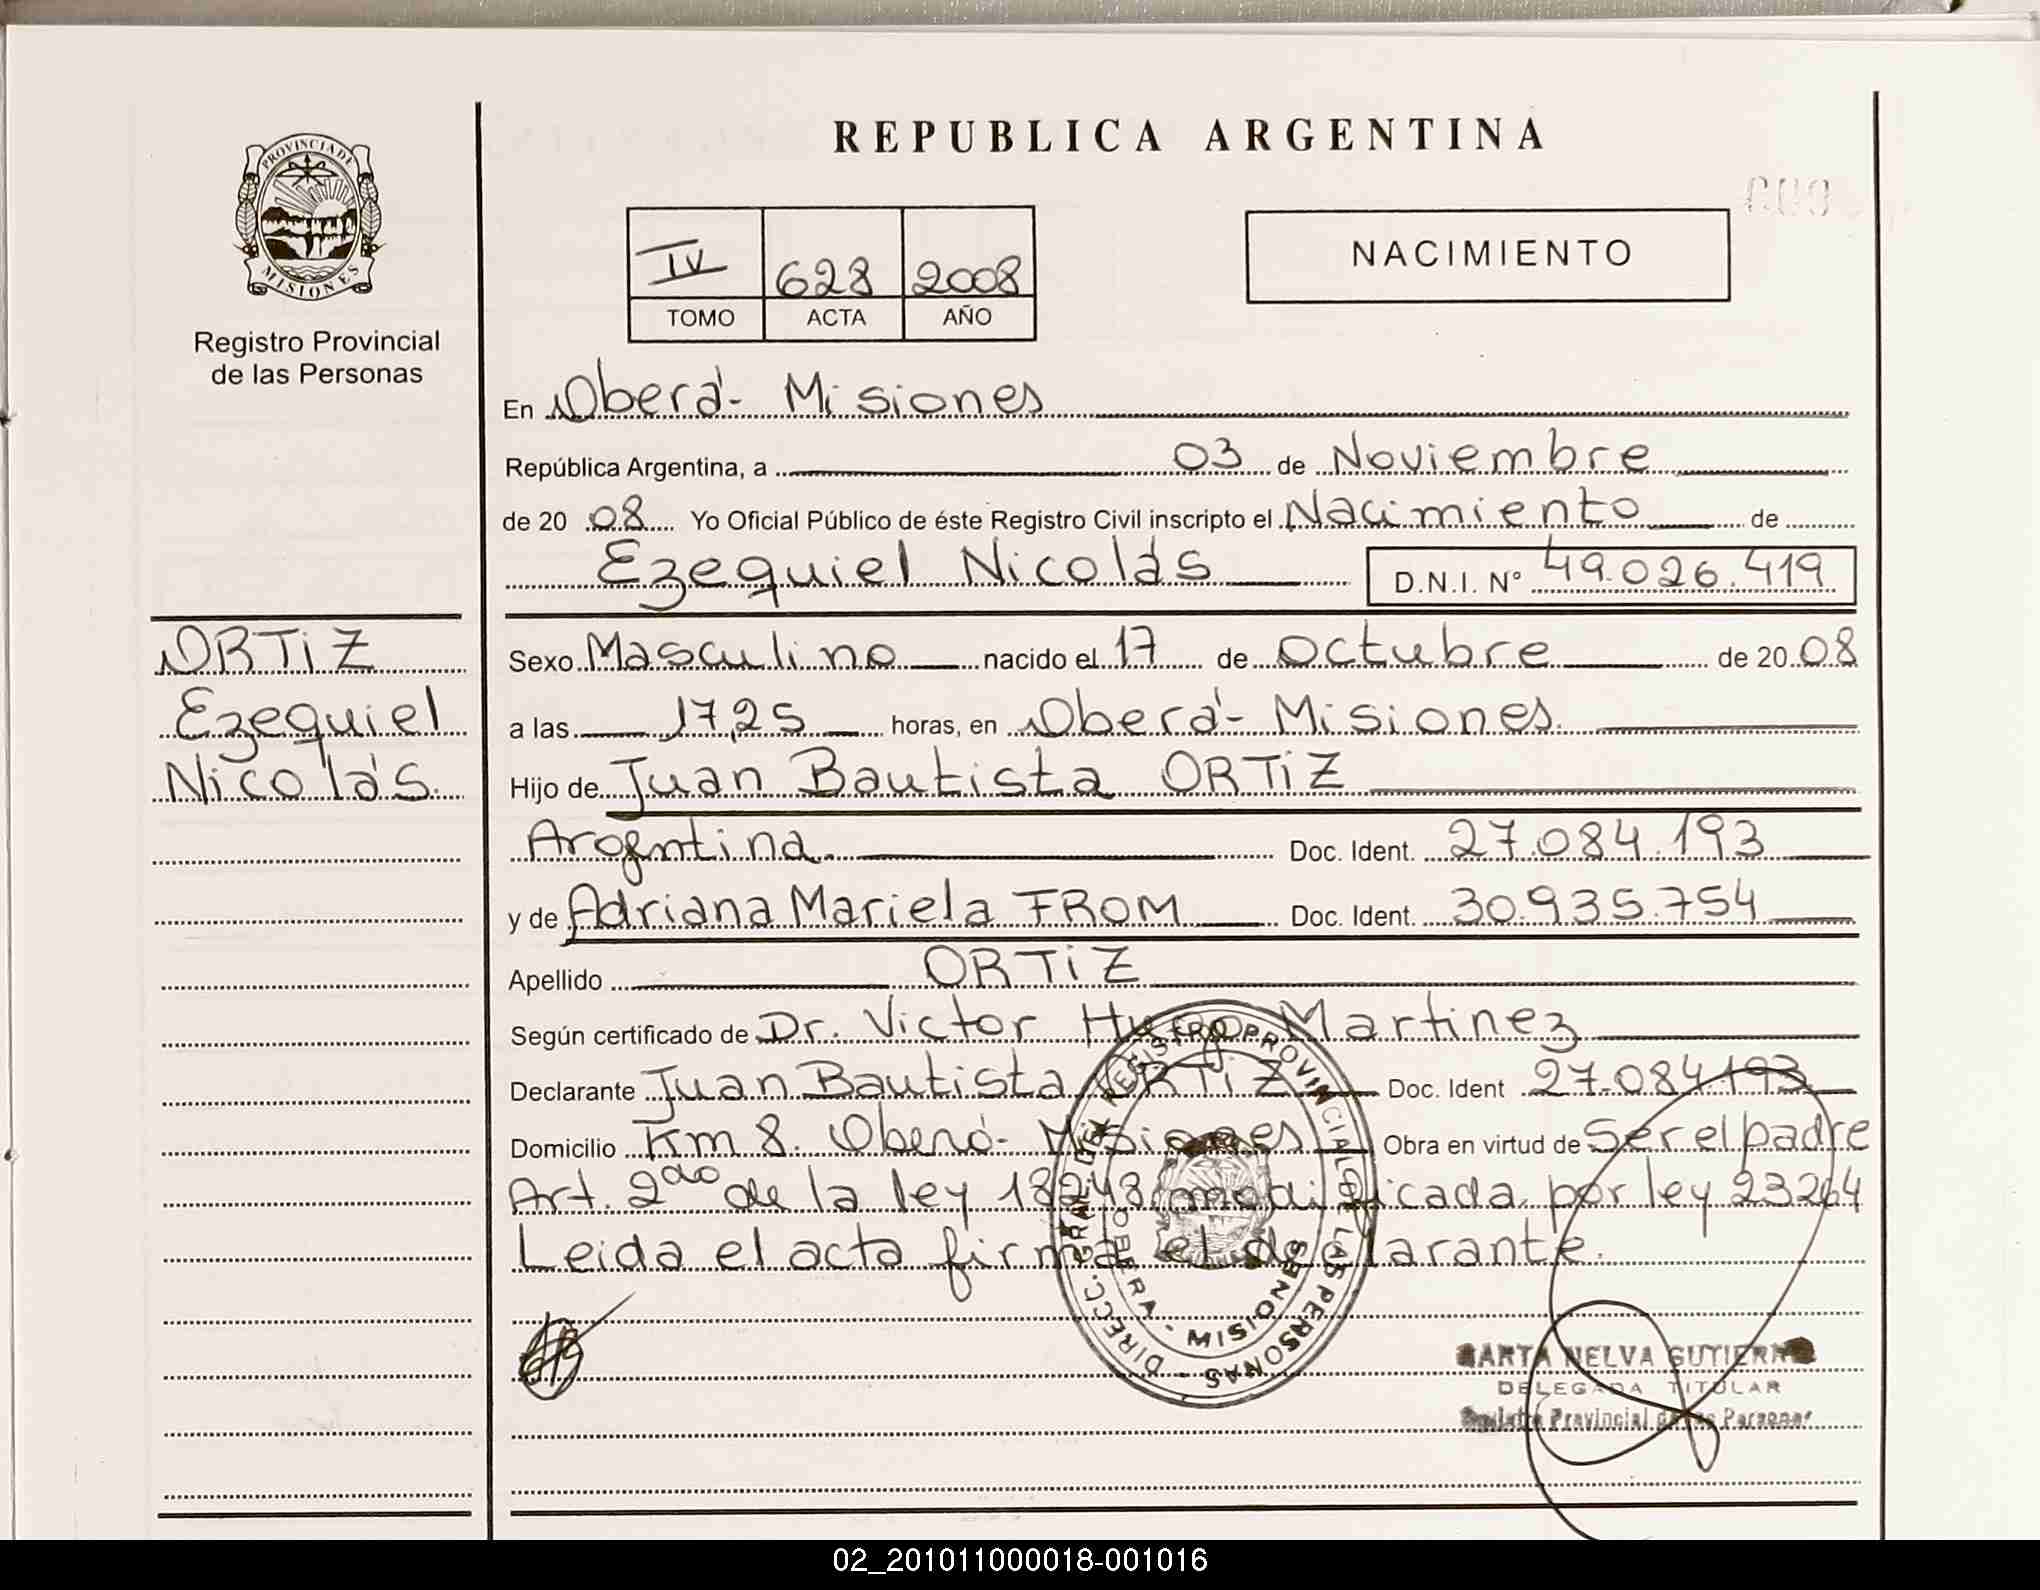 REPUBLICA ARGENTINA
PROVINCIA DE
MISIONES
Registro Provincial
de las Personas
IV 628 2008
TOMO ACTA AÑO
NACIMIENTO
En Oberá- Misiones
República Argentina, a 03 de Noviembre
de 20 08 Yo Oficial Público de éste Registro Civil inscripto el Nacimiento de
Ezequiel Nicolás D.N.I. N° 49.026.419
ORTiZ
Ezequiel
Nicolás.
Sexo Masculino nacido el 17 de Octubre de 20 08
a las 17,25 horas, en Oberá- Misiones.
Hijo de Juan Bautista ORTiZ
Argentina. Doc. Ident. 27.084.193
y de Adriana Mariela FROM Doc. Ident. 30.935.754
Apellido ORTiZ
Según certificado de Dr. Victor Hugo Martinez
Declarante Juan Bautista ORTiZ Doc. Ident 27.084.193
Domicilio Km 8. Oberá- Misiones Obra en virtud de Ser el padre
Art. 2do de la ley 18248 modificada por ley 23264
Leida el acta firma el declarante.
DIRECC. GRAL. DEL REGISTRO PROVINCIAL DE LAS PERSONAS
OBERA - MISIONES
NELVA GUTIERR
DELEGADA TITULAR
Registro Provincial de las Personas
02_201011000018-001016